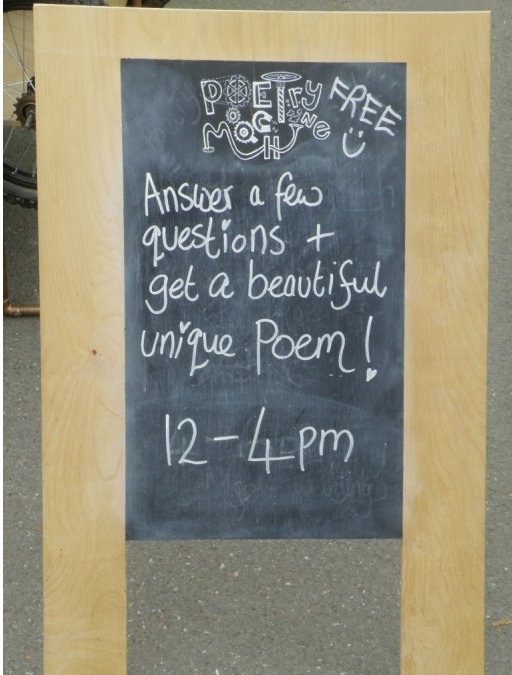 POETry FREE
MacHiNe :)
Answer a few
questions +
get a beautiful
unique Poem!
12-4pm